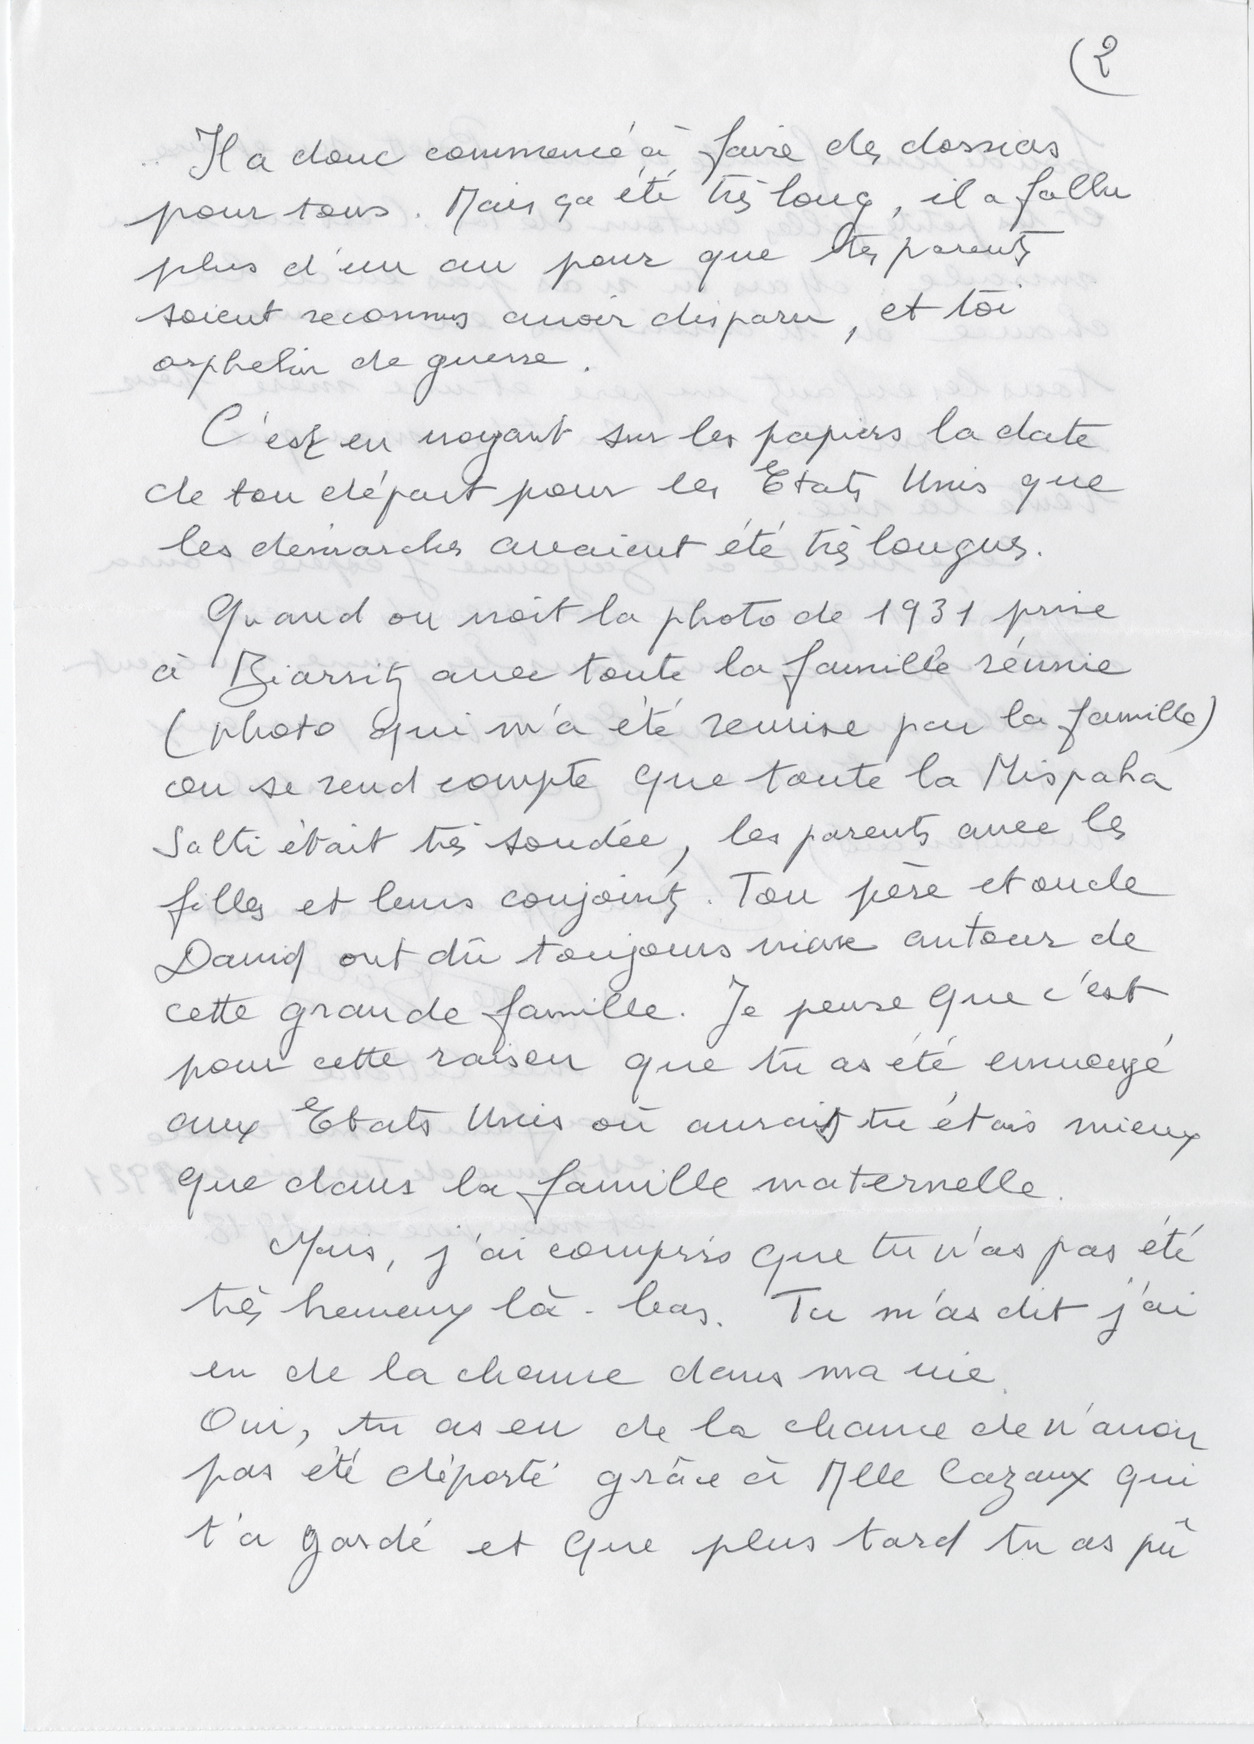 (2
Il a donc commencé à faire des dossiers
pour tous. Mais ça été très long, il a fallu
plus d'un an pour que tes parents
soient reconnus avoir disparu, et toi
orphelin de guerre.
C'est en voyant sur les papiers la date
de ton départ pour les Etats Unis que
les démarches avaient été très longues.
Quand on voit la photo de 1931 prise
à Biarritz avec toute la famille réunie
(photo qui m'a été remise par la famille)
on se rend compte que toute la Mispaha
Salti était très soudée, les parents avec les
filles et leurs conjoints. Ton père et oncle
David ont dû toujours vivre autour de
cette grande famille. Je pense que c'est
pour cette raison que tu as été envoyé
aux Etats Unis où aurais tu étais mieux
que dans la famille maternelle.
Mais, j'ai compris que tu n'as pas été
très heureux là-bas. Tu m'as dit j'ai
eu de la chance dans ma vie.
Oui, tu as eu de la chance de n'avoir
pas été déporté grâce à Mlle Cazaux qui
t'a gardé et que plus tard tu as pû